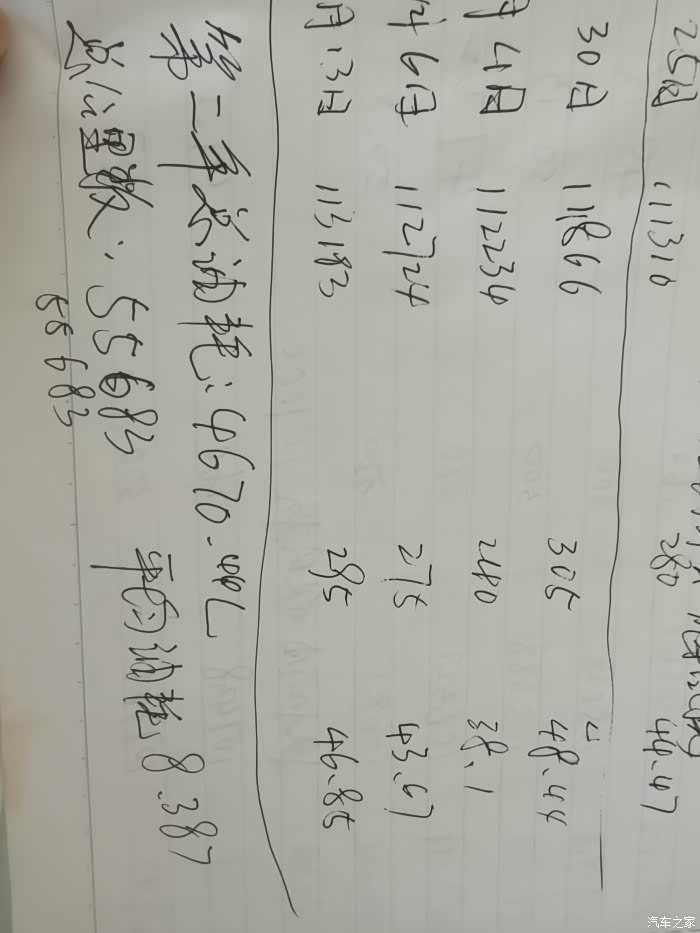 25日 111310 280 44.47
30日 111866 305 〃 48.44
月4日 112234 240 38.1
6日 112724 275 43.67
月13日 113183 295 46.85
第二年总油耗:4670.44L
总公里数:55683 平均油耗8.387
55683
汽车之家